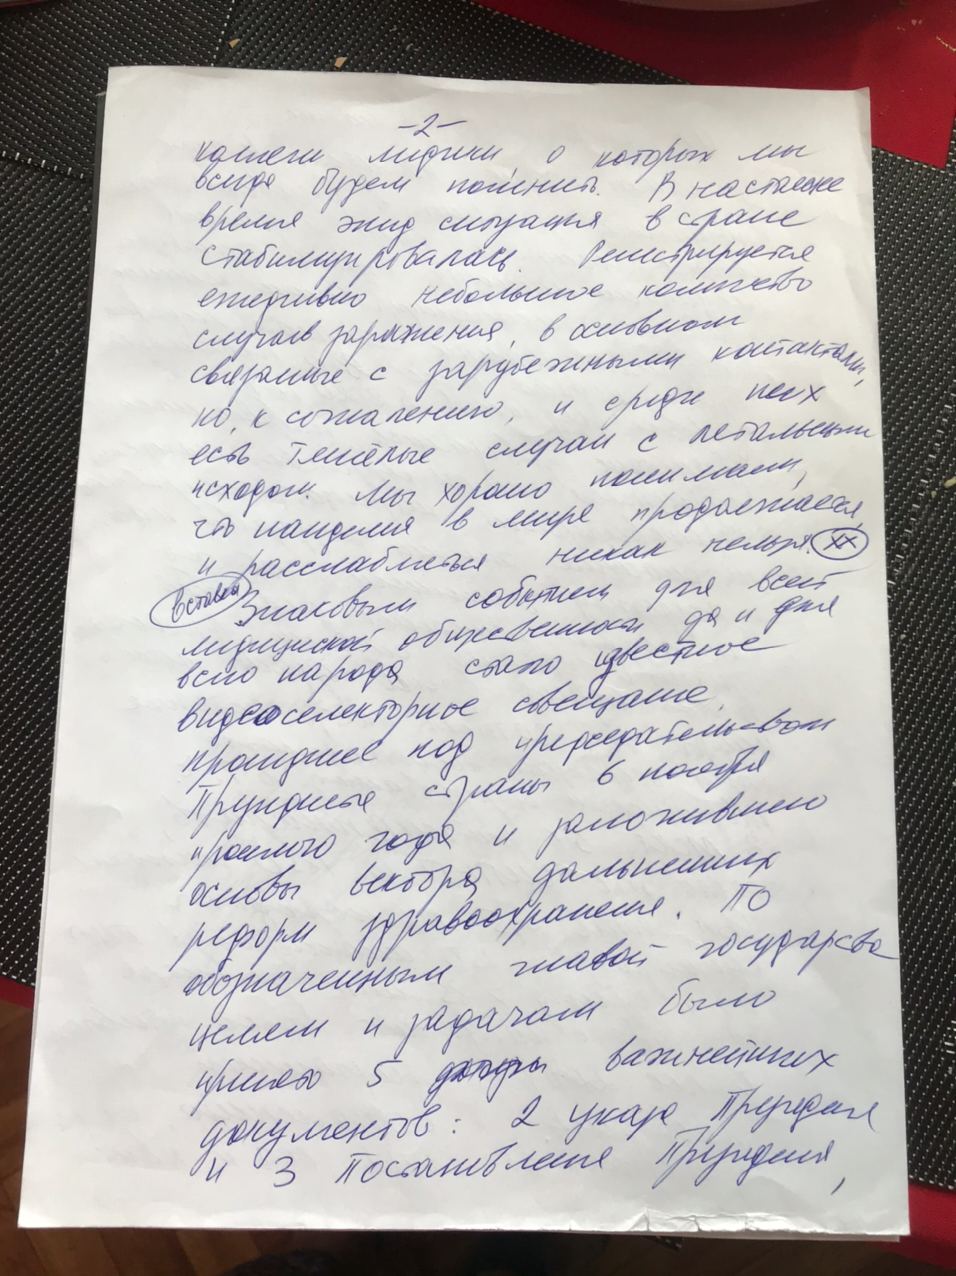 -2-
коллеги медики о которых мы
всегда будем помнить. В настоящее
время эпид ситуация в стране
стабилизировалась. Регистрируется
ежедневно небольшое количество
случаев заражения, в основном
связанные с зарубежными контактами,
но, к сожалению, и среди них
есть тяжёлые случаи с летальным
исходом. Мы хорошо понимаем,
что пандемия в мире продолжается,
и расслабляться никак нельзя. ХХ
вставка Знаковым событием для всей
медицинской общественности да и для
всего народа стало известное
видеоселекторное совещание,
прошедшее под председательством
Президента страны 6 ноября
прошлого года и заложившего
основы вектора дальнейших
реформ здравоохранения. По
обозначенным главой государства
целям и задачам было
принято 5 важнейших
документов: 2 указа Президента
и 3 Постановления Президента,